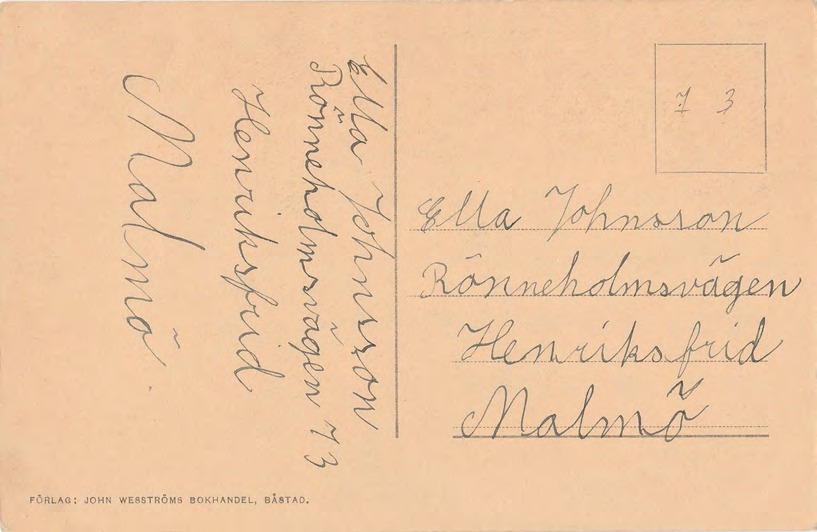 Ella Johnsson
Rönneholmsvägen 73
Henriksfrid
Malmö.
7 3
Ella Johnsson
Rönneholmsvägen
Henriksfrid
Malmö
FÖRLAG: JOHN WESSTRÖMS BOKHANDEL, BÅSTAD.